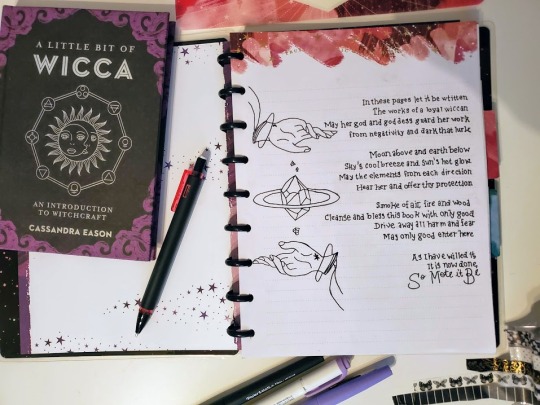 A LITTLE BIT OF
WICCA
AN INTRODUCTION
TO WITCHCRAFT
CASSANDRA EASON
In these pages let it be written
The works of a loyal wiccan
May her god and goddess guard her work
From negativity and dark that lurk
Moon above and earth below
Sky's cool breeze and sun's hot glow
May the elements from each direction
Hear her and offer thy protection
Smoke of air, fire and wood
Cleanse and bless this book with only good
Drive away all harm and fear
May only good enter here
As I have willed it
It is now done
So Mote it Be